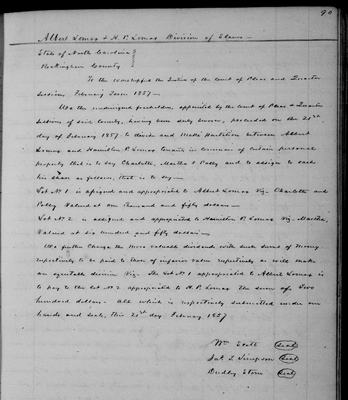 90
Albert Lomax & H. P. Lomax Division of Slaves
State of North Carolina
Rockingham County
To the worshipful the Justices of the Court of Pleas and Quarter
Session February Term 1857 —
We the undersigned freeholders, appointed by the Court of Pleas & Quarter
Sessions of said County, having been duly sworn, proceeded on the 21st
day of February 1857 to divide and make Partition between Albert
Lomax and Hamilton P. Lomax tenants in common of certain personal
property that is to say Charlotte, Martha & Polly and to assign to each
his share as follows, that is to say —
Lot No 1 is assigned and appropriated to Albert Lomax viz. Charlotte and
Polley Valued at one thousand and fifty dollars —
Lot No 2 is assigned and appropriated to Hamilton P. Lomax viz. Martha,
Valued at six hundred and fifty dollars —
We further Charge the more valuable dividend with such sums of Money
respectively to be paid to those of inferior value respectively as will make
an equitable division viz. The Lot No 1 appropriated to Albert Lomax is
to pay to the Lot No 2 appropriated to H. P. Lomax the sum of Two
hundred dollars. All which is respectively submitted under our
hands and seals, this 21st day February 1857
Wm (Seal)
Simpson (Seal)
Dudley (Seal)